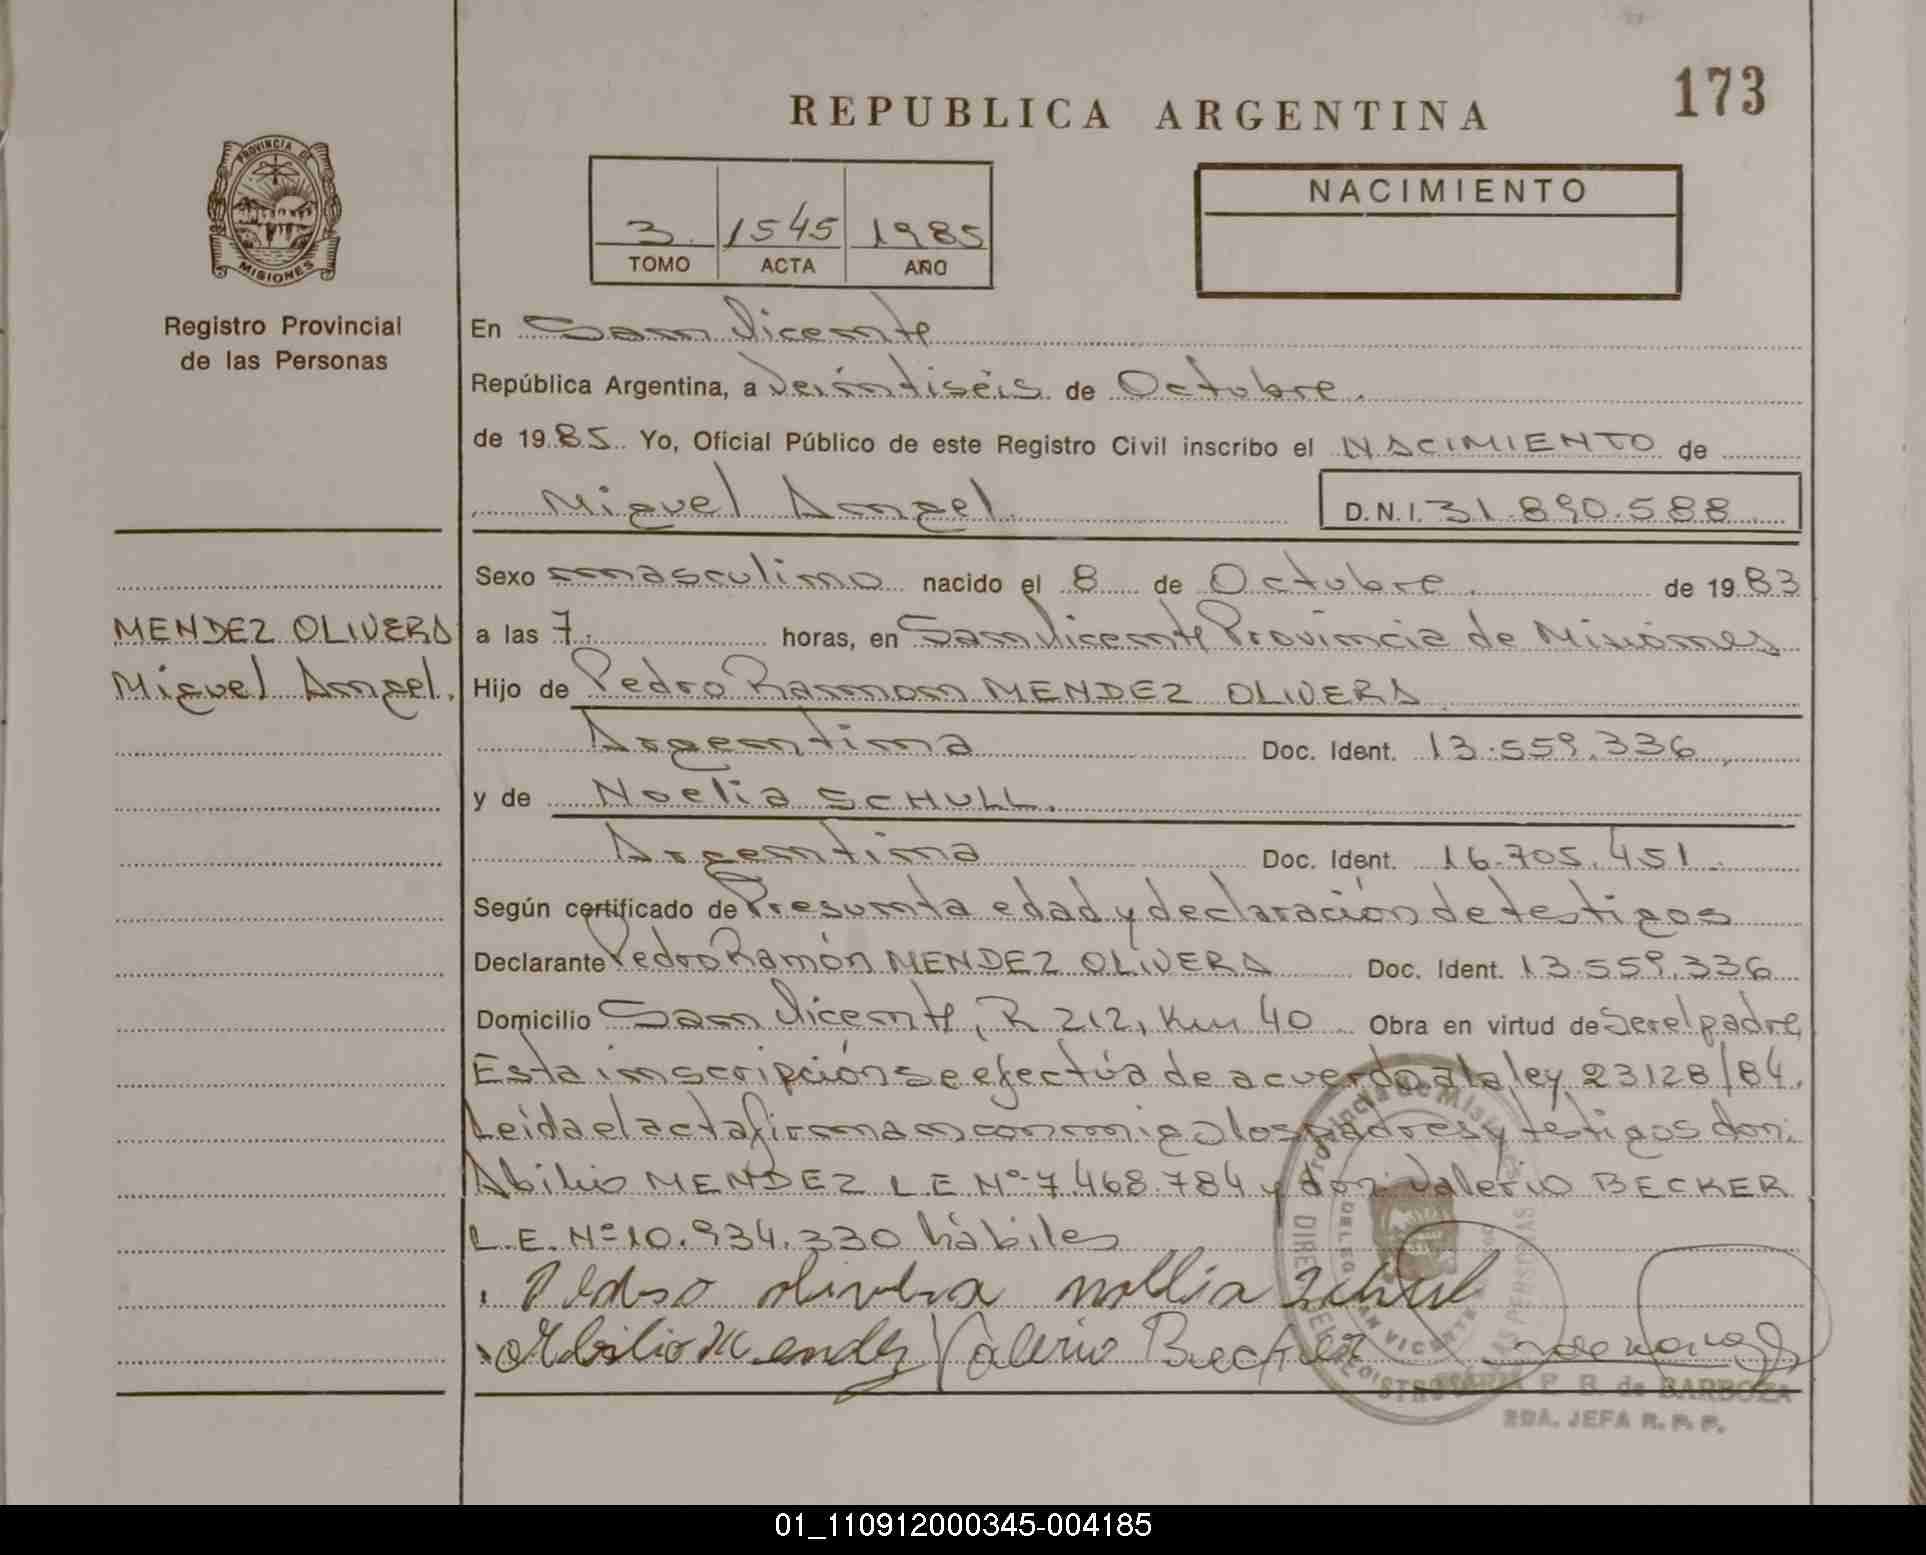 173
REPUBLICA ARGENTINA
PROVINCIA DE
MISIONES
Registro Provincial
de las Personas
3. 1545 1985
TOMO ACTA AÑO
NACIMIENTO
En San Vicente
República Argentina, a Veintiséis de Octubre.
de 1985. Yo, Oficial Público de este Registro Civil inscribo el NACIMIENTO de
Miguel Angel. D.N.I. 31.890.588
Sexo masculino nacido el 8 de Octubre. de 1983
MENDEZ OLIVERA
Miguel Angel.
a las 7. horas, en San Vicente Provincia de Misiones
Hijo de Pedro Ramon MENDEZ OLIVERA.
Argentina Doc. Ident. 13.559.336
y de Noelia SCHULL.
Argentina Doc. Ident. 16.705.451.
Según certificado de Presunta edad y declaración de testigos
Declarante Pedro Ramón MENDEZ OLIVERA Doc. Ident. 13.559.336
Domicilio San Vicente, R 212, Km 40 Obra en virtud de Ser el padre,
Esta inscripción se efectúa de acuerdo a la ley 23128/84.
Leída el acta firman conmigo los padres y testigos don:
Abilio MENDEZ L.E Nº 7.468.784 y don: Valerio BECKER
L.E. Nº 10.934.330 hábiles
Pedro olivera noelia Schul
Abilio Mendez Valerio Becker
Provincia de Misiones
SAN VICENTE
P. B. de BARBOZA
2DA. JEFA R. P. P.
01_110912000345-004185